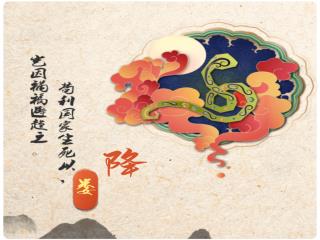 苟利国家生死以，
岂因祸福避趋之。
降
娄